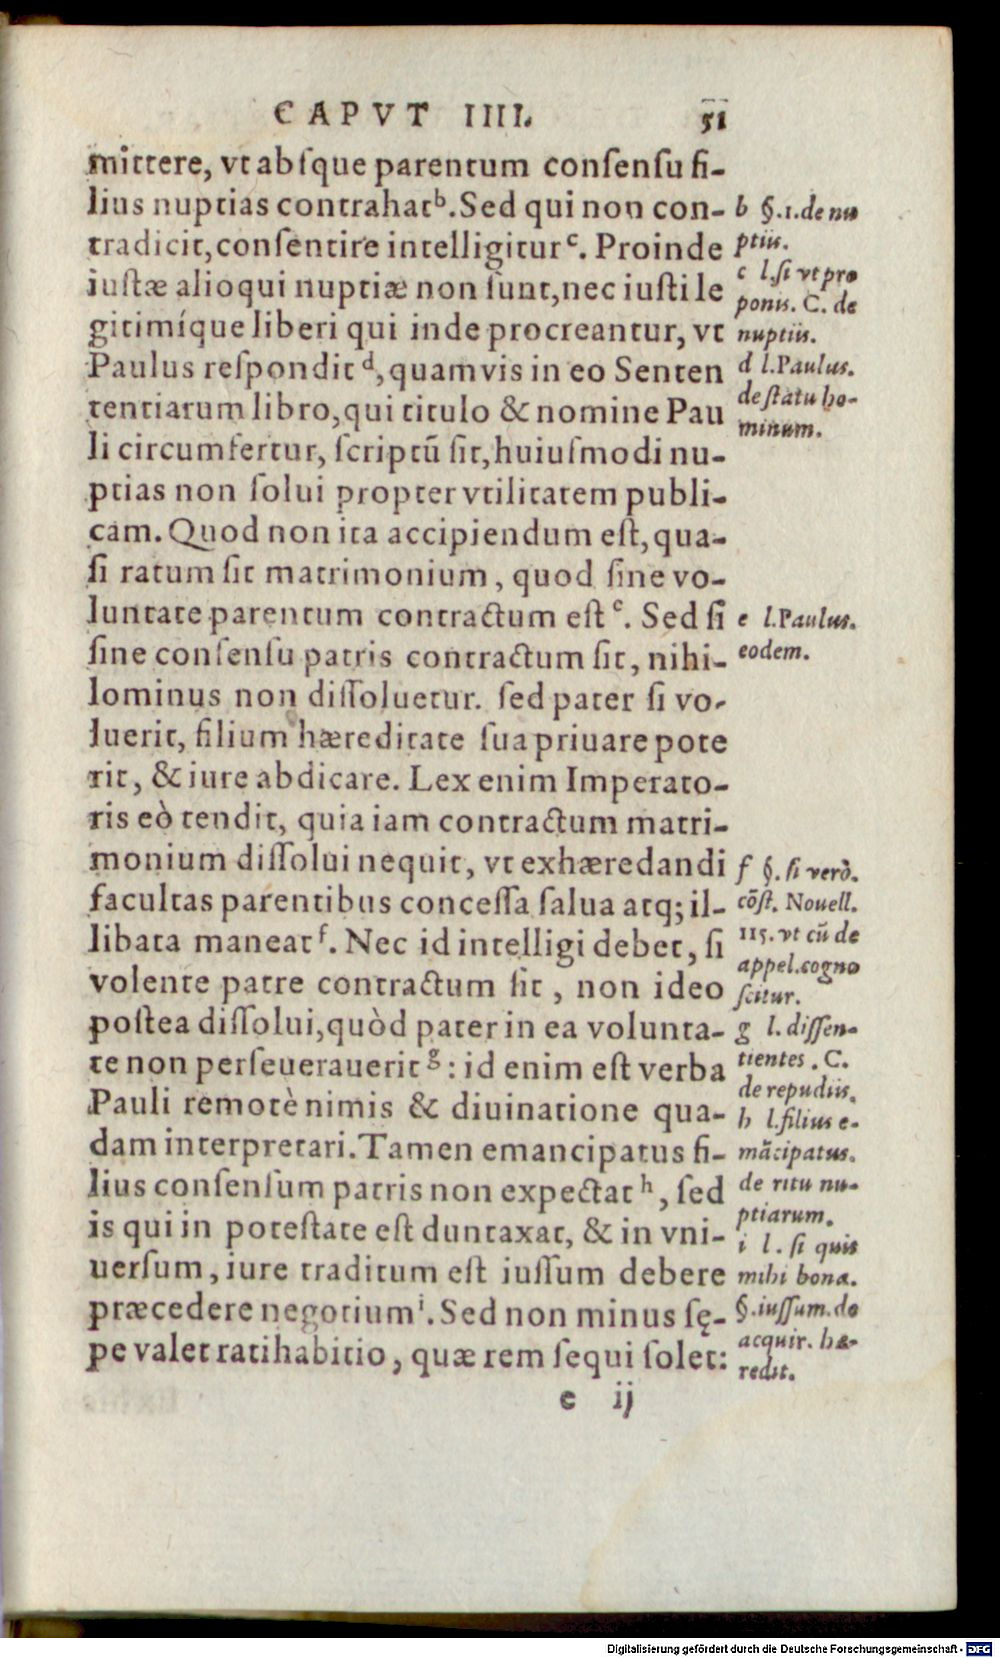 CAPVT IIII. 51
mittere, vt absque parentum consensu fi-
lius nuptias contrahatᵇ. Sed qui non con-
tradicit, consentire intelligiturᶜ. Proinde
iustæ alioqui nuptiæ non sunt, nec iusti le
gitimíque liberi qui inde procreantur, vt
Paulus respondit ᵈ, quamvis in eo Senten
tentiarum libro, qui titulo & nomine Pau
li circumfertur, scriptū sit, huiusmodi nu-
ptias non solui propter vtilitatem publi-
cam. Quod non ita accipiendum est, qua-
si ratum sit matrimonium, quod sine vo-
luntate parentum contractum est ᵉ. Sed si
sine consensu patris contractum sit, nihi-
lominus non dissoluetur. sed pater si vo-
luerit, filium hæreditate sua priuare pote
rit, & iure abdicare. Lex enim Imperato-
ris eò tendit, quia iam contractum matri-
monium dissolui nequit, vt exhæredandi
facultas parentibus concessa salua atq; il-
libata maneatᶠ. Nec id intelligi debet, si
volente patre contractum sit, non ideo
postea dissolui, quòd pater in ea volunta-
te non perseuerauerit ᵍ: id enim est verba
Pauli remotè nimis & diuinatione qua-
dam interpretari. Tamen emancipatus fi-
lius consensum patris non expectat ʰ, sed
is qui in potestate est duntaxat, & in vni-
uersum, iure traditum est iussum debere
præcedere negotiumⁱ. Sed non minus sę-
pe valet ratihabitio, quæ rem sequi solet:
e ij
b §.1. de nu
ptiis.
c l. si vt pro
ponis. C. de
nuptiis.
d l. Paulus.
de statu ho-
minum.
e l. Paulus.
eodem.
f §. si verò.
cōst. Nouell.
115. vt cū de
appel. cogno
scitur.
g l. dissen-
tientes. C.
de repudiis.
h l. filius e-
mācipatus.
de ritu nu-
ptiarum.
i l. si quis
mihi bona.
§. iussum. de
acquir. hæ-
redit.
Digitalisierung gefördert durch die Deutsche Forschungsgemeinschaft - DFG